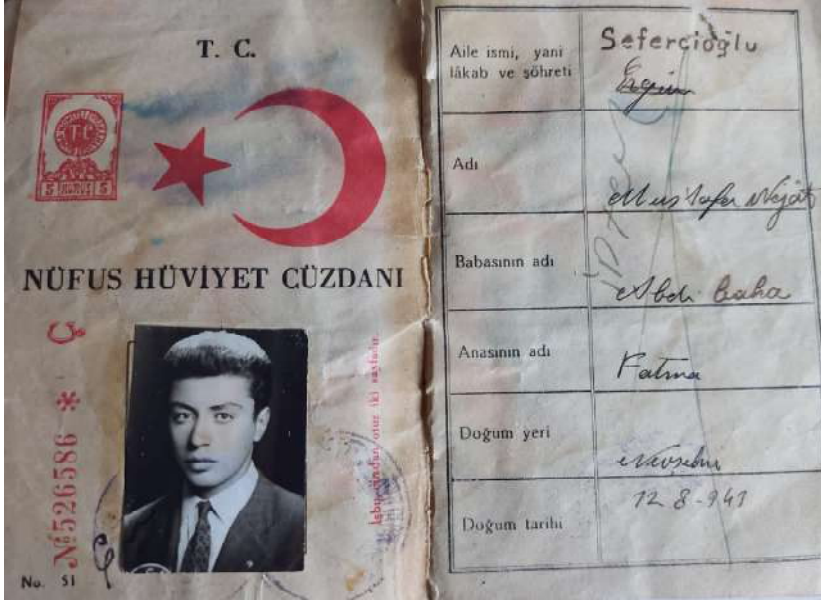 T. C.
T C
5 KURUŞ 5
NÜFUS HÜVİYET CÜZDANI
Ç
№ 526586 *
İşbu cüzdan otuz iki sayfadır.
No. 51
Aile ismi, yani
lâkab ve şöhreti
Sefercioğlu
Ergün
Adı
Mustafa Nejat
Babasının adı
Abdi baha
Anasının adı
Fatma
Doğum yeri
Nevşehir
Doğum tarihi
12-8-941
İPTAL